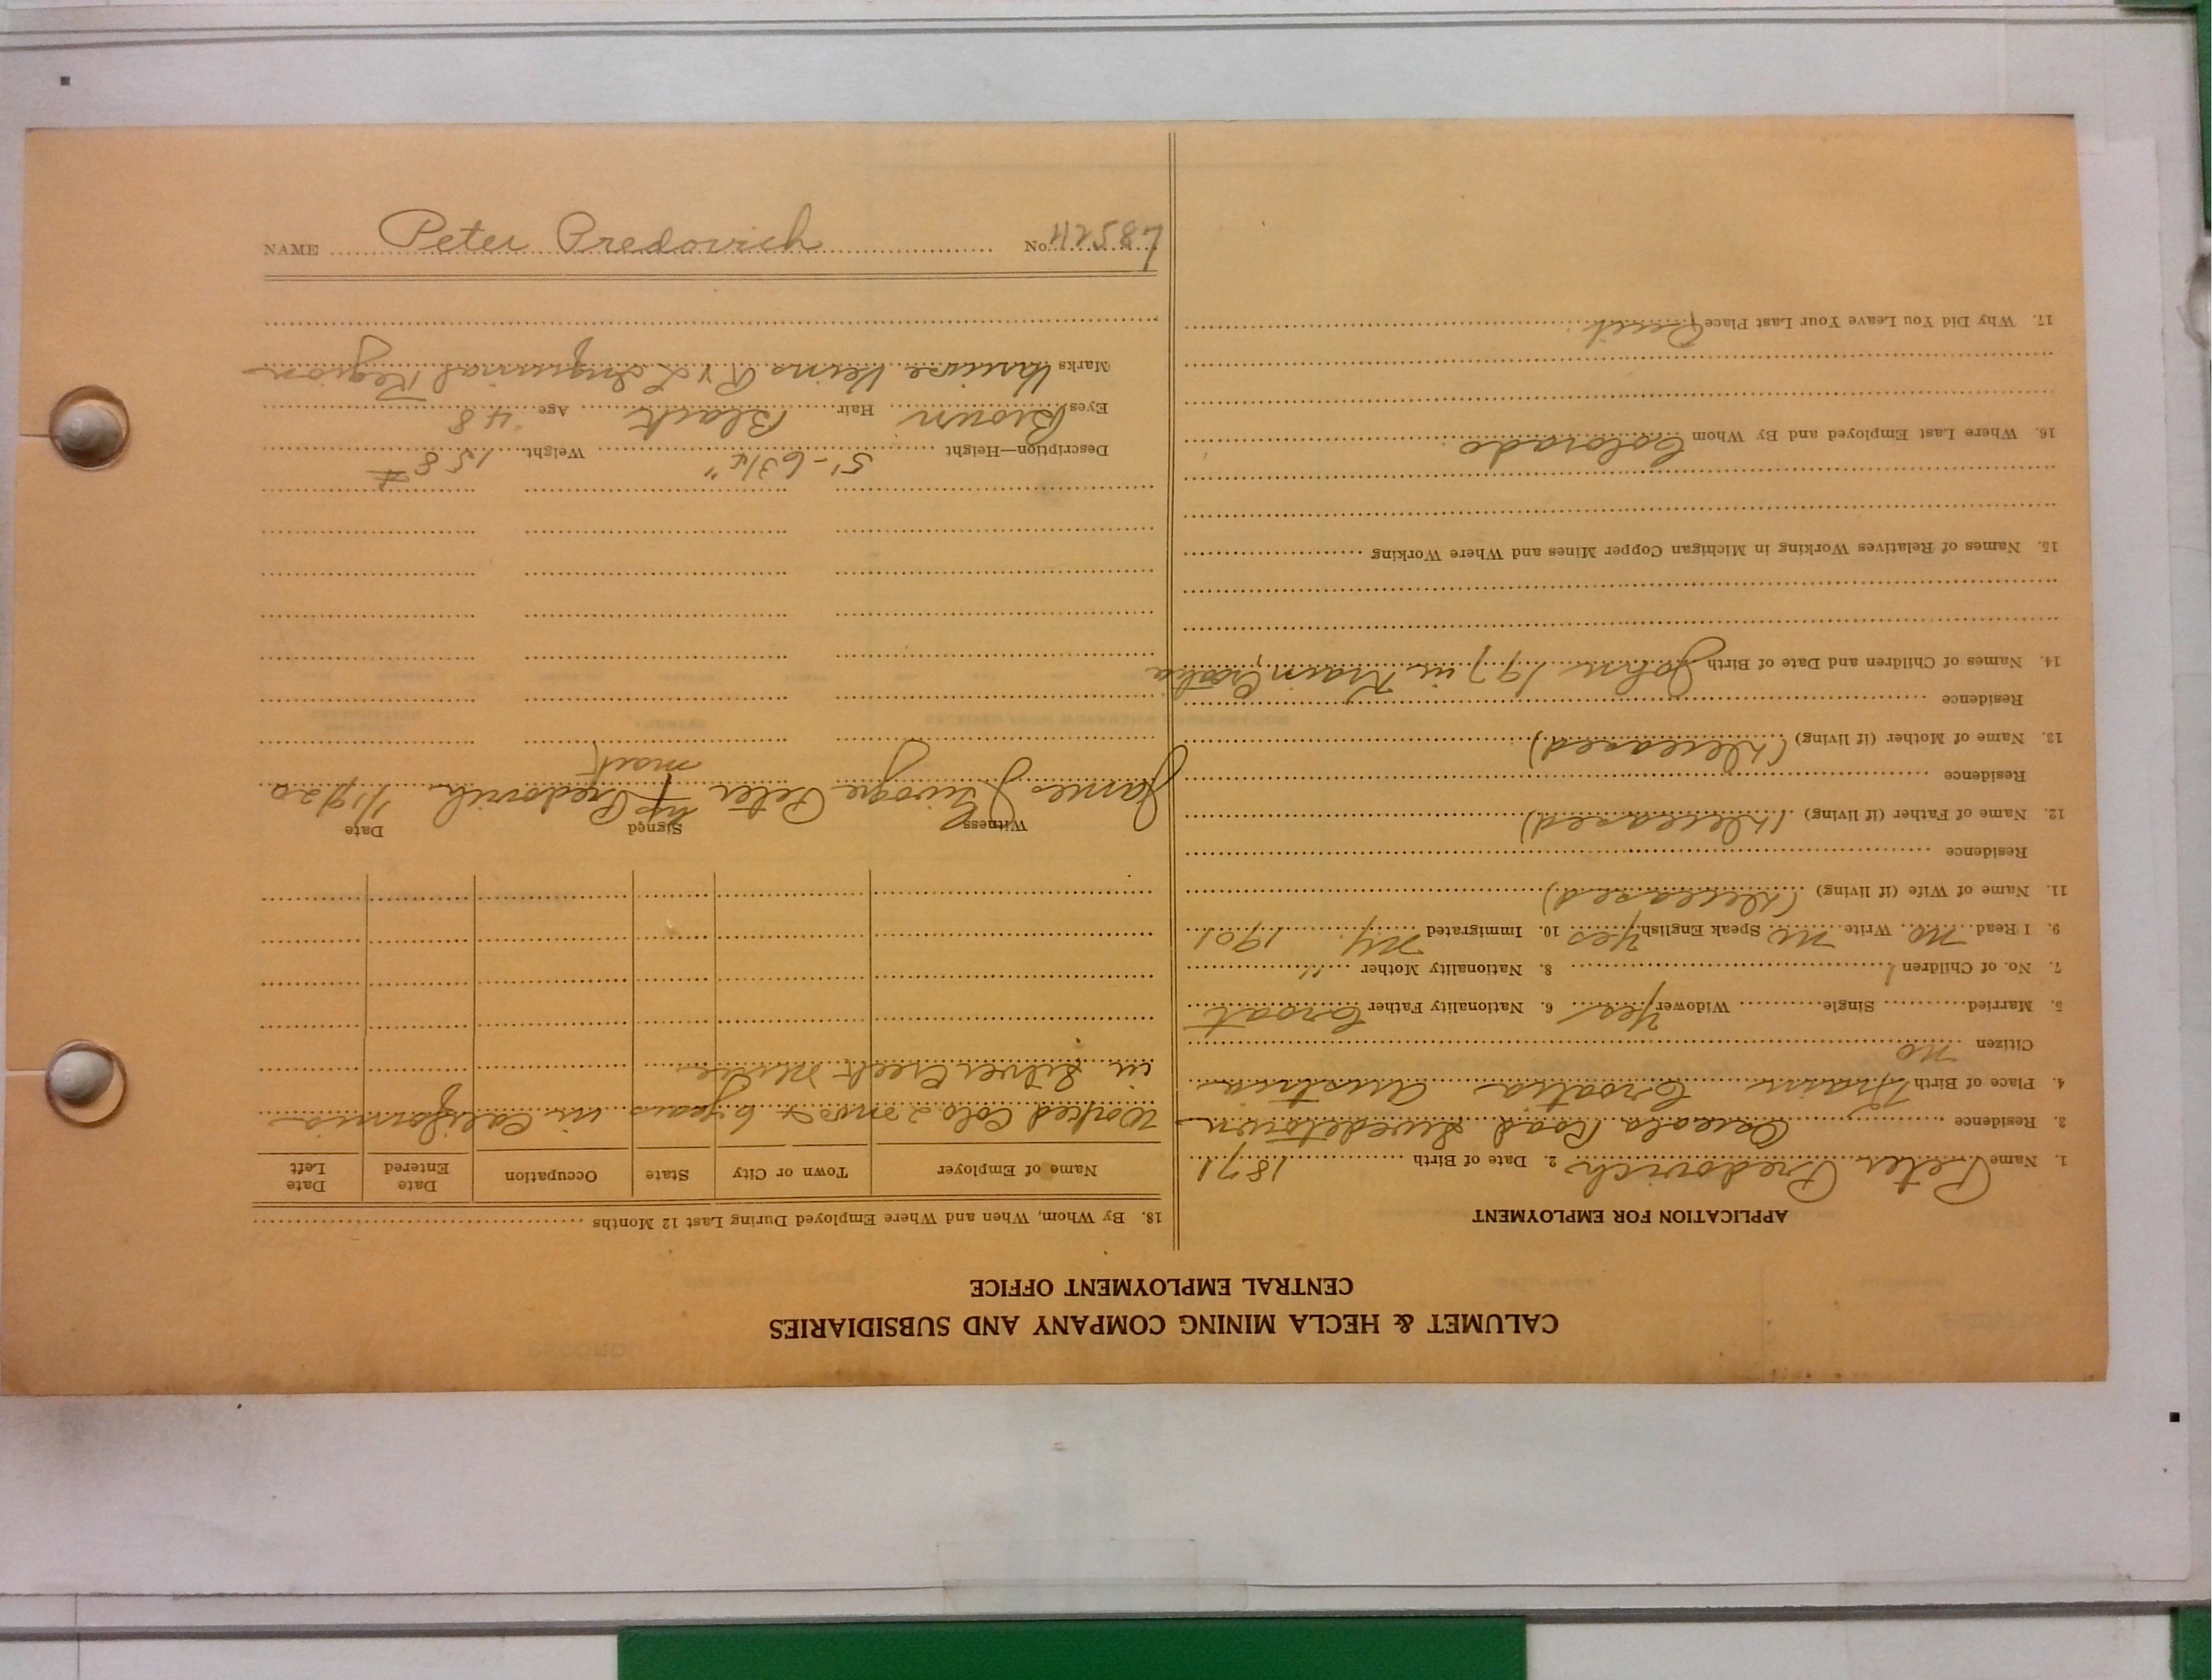 CALUMET & HECLA MINING COMPANY AND SUBSIDIARIES
CENTRAL EMPLOYMENT OFFICE
APPLICATION FOR EMPLOYMENT
1. Name Peter Predovich 2. Date of Birth 1871
3. Residence Osceola Road Swedetown
4. Place of Birth Krain Croatia Austria
Citizen no
5. Married Single Widower Yes 6. Nationality Father Croat
7. No. of Children 1 8. Nationality Mother "
9. I Read no Write no Speak English yes 10. Immigrated NY. 1901
11. Name of Wife (if living) (Deceased)
Residence
12. Name of Father (if living) (Deceased)
Residence
13. Name of Mother (if living) (Deceased)
Residence
14. Names of Children and Date of Birth John 19 in Krain, Croatia
15. Names of Relatives Working in Michigan Copper Mines and Where Working
16. Where Last Employed and By Whom Colorado
17. Why Did You Leave Your Last Place Quit
18. By Whom, When and Where Employed During Last 12 Months
Name of Employer Town or City State Occupation Date Entered Date Left
Worked Colo 2 mos + 6 years in California
in Silver Creek Mine
Witness Signed Date
James Peter his Predovich 1/19/20
mark
Description—Height 5'-6 3/4" Weight 158 #
Eyes Brown Hair Black Age 48
Marks Varicose Veins R & L Inguinal Region
NAME Peter Predovich No. 42587